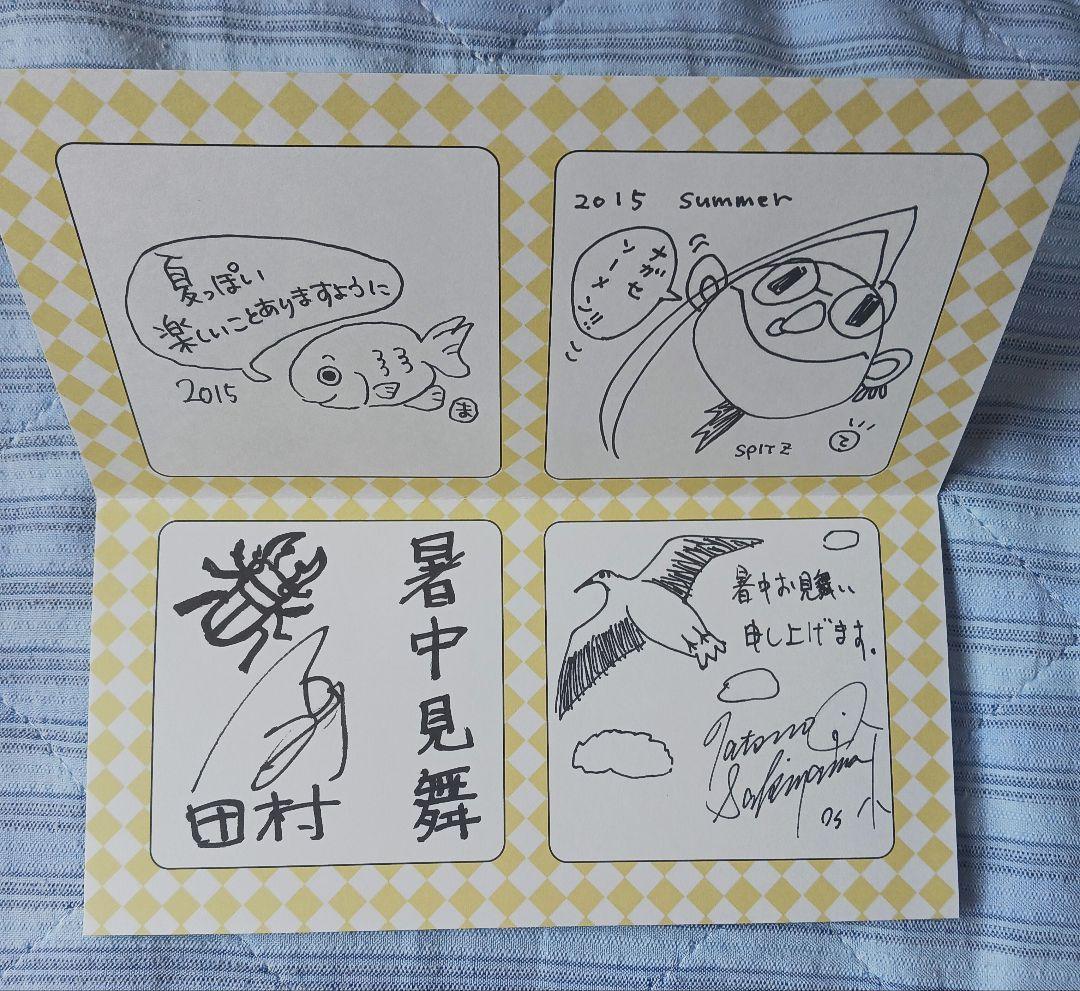 夏っぽい
楽しいことありますように
2015
ま
2015 summer
メガセ
ンーメ
ン!!
SPITZ
と
暑中見舞
田村
暑中お見舞い
申し上げます。
Tatsuo
Sakiyama